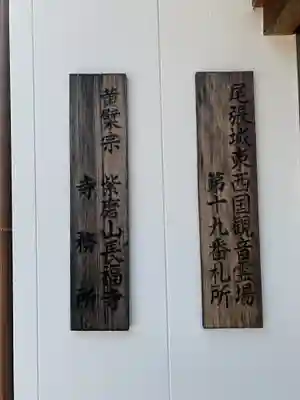 尾張城東西国観音霊場
第十九番札所
黄檗宗 紫磨山長福寺
寺務所